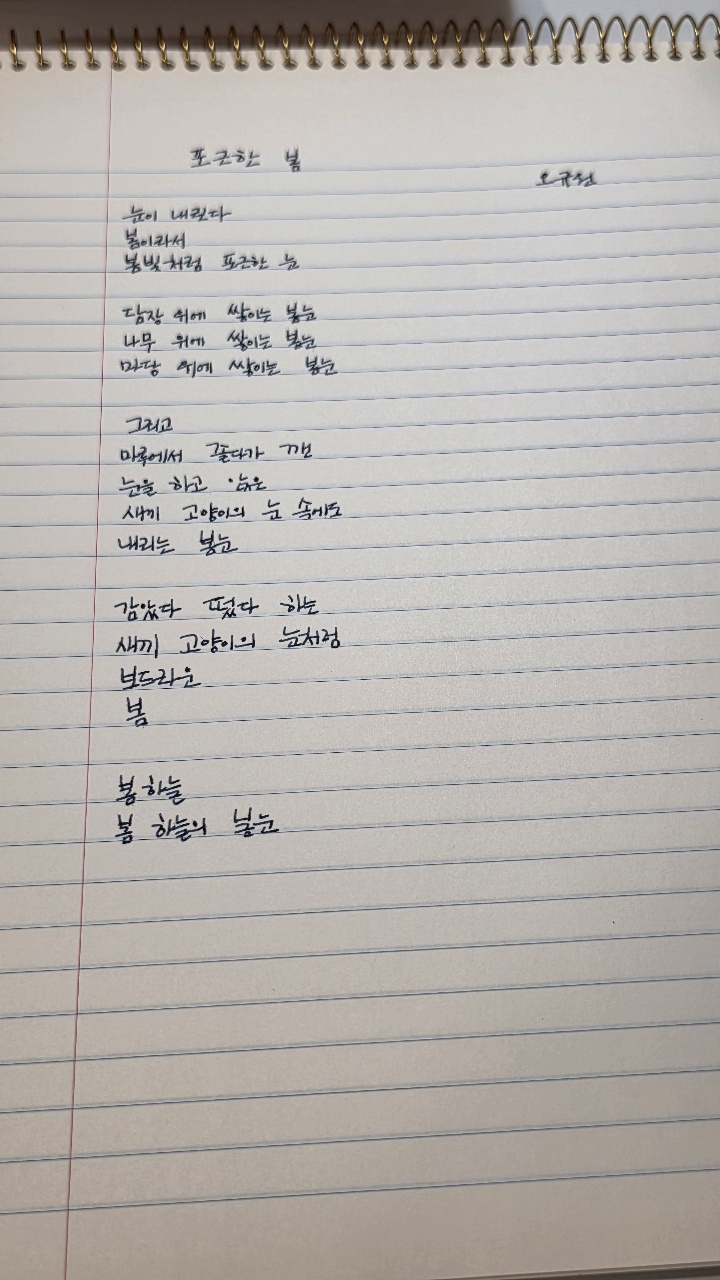 포근한 봄
오규원
눈이 내린다
봄이라서
봄빛처럼 포근한 눈
담장 위에 쌓이는 봄눈
나무 위에 쌓이는 봄눈
마당 위에 쌓이는 봄눈
그리고
마루에서 졸다가 깬
눈을 하고 앉은
새끼 고양이의 눈 속에도
내리는 봄눈
감았다 떴다 하는
새끼 고양이의 눈처럼
보드라운
봄
봄 하늘
봄 하늘의 봄눈